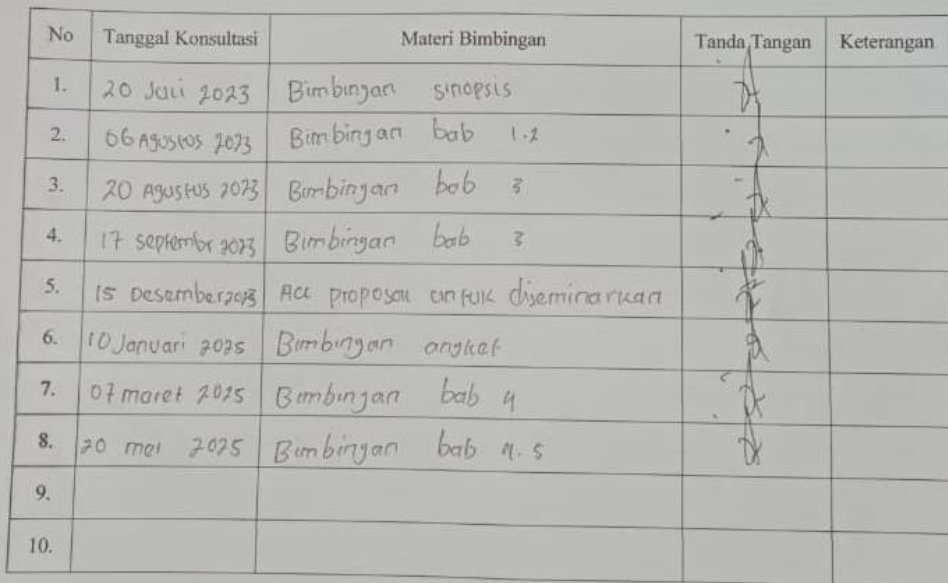 No Tanggal Konsultasi Materi Bimbingan Tanda Tangan Keterangan
1. 20 Juli 2023 Bimbingan sinopsis
2. 06 Agustus 2023 Bimbingan bab 1.2
3. 20 Agustus 2023 Bimbingan bab 3
4. 17 Septembr 2023 Bimbingan bab 3
5. 15 Desember 2023 Acc proposal untuk diseminarkan
6. 10 Januari 2025 Bimbingan angket
7. 07 maret 2025 Bimbingan bab 4
8. 20 mei 2025 Bimbingan bab 4.5
9.
10.